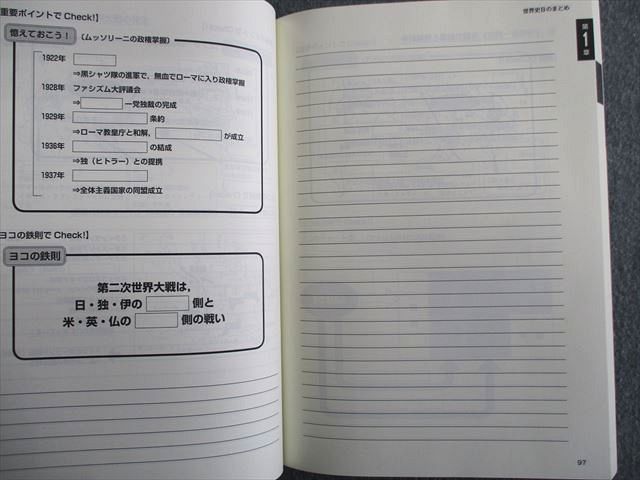 重要ポイントで Check!】
憶えておこう！
（ムッソリーニの政権掌握）
1922年
⇒黒シャツ隊の進軍で，無血でローマに入り政権掌握
1928年 ファシズム大評議会
⇒ 一党独裁の完成
1929年 条約
⇒ローマ教皇庁と和解， が成立
1936年 の結成
⇒独（ヒトラー）との提携
1937年
⇒全体主義国家の同盟成立
ヨコの鉄則で Check!】
ヨコの鉄則
第二次世界大戦は，
日・独・伊の 側と
米・英・仏の 側の戦い
世界史Bのまとめ
第
1
章
97